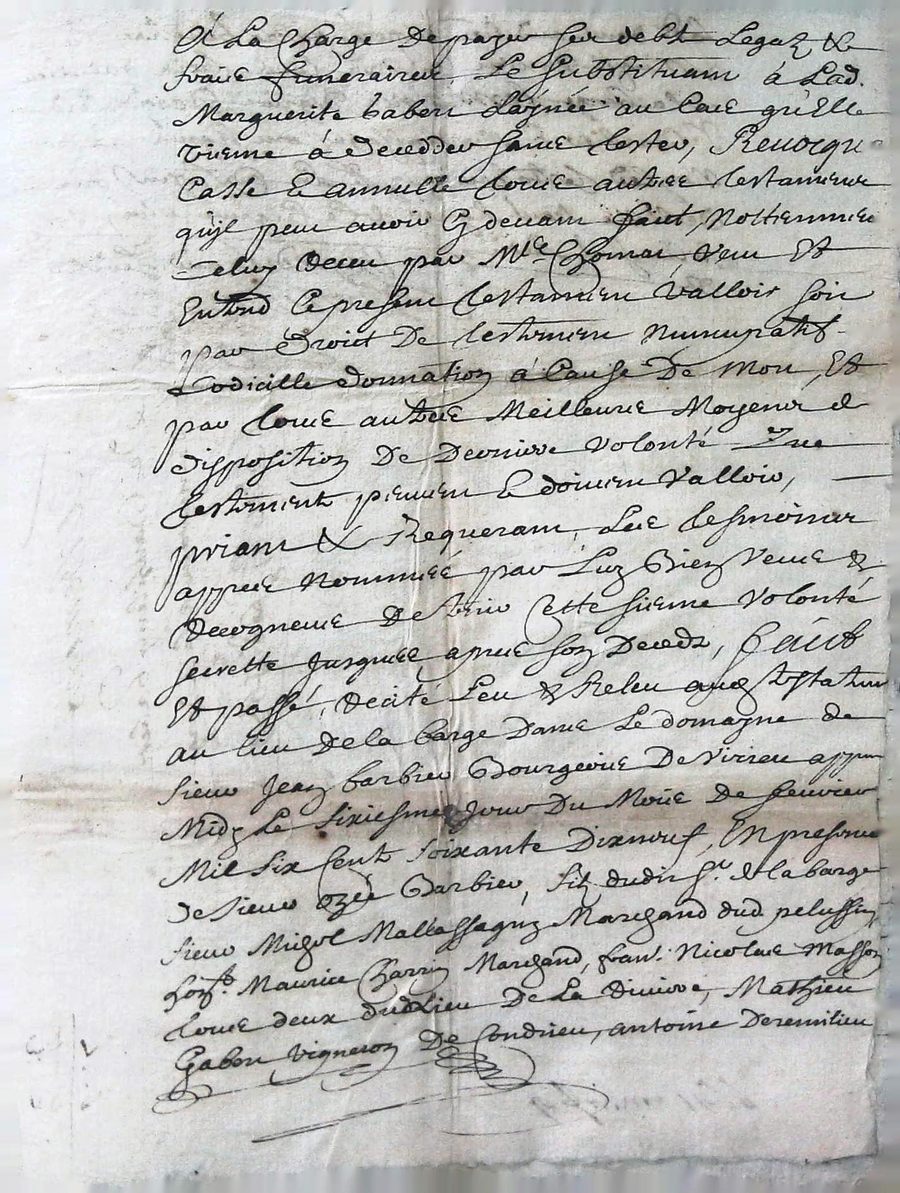 A La Charge De payer ses debt Legaz &
fraie funeraires Le substituant à Lad.
Marguerite Gabert Laynée au Cas qu'Elle
vienne à decedder sans tester, Revocque
Casse & annulle tous autres testamens
qu'jl peut avoir Cy devant fait, Nottemment
Celuy Receu par Me. Thomas Et
Entend Ce present testament valloir soit
par droit De testament Nuncupatif
Codicille donnation à Cause De Mort, Et
par tous autres Meilleurs Moyens &
disposition De Derniere volonté Que
testament peuvent & doivent valloir,
priant & Requerant, Les tesmoins
appres Nommeés par Luy Bien Veue &
Recogneus De tenir Cette sienne volonté
secrette Jusques apres son Deceds, faict
Et passé, Recité Leu & Releu aud. testateur
au lieu De la barge Dans Le domayne de
sieur Jean barbier Bourgeois De Virieu appres
Midy Le sixiesme jour Du Mois De febvrier
Mil six Cent soixante Dixneuf, En presence
de sieur ozeé Barbier, filz dudit sr. de la barge
sieur Michel Mallassagny Marchand dud. pelussin
hon. Maurice Charry Marchand, fran. Nicolas Masson
tous deux dud. Lieu De La , Mathieu
Gabert vigneron De Condrieu, antoine Deremilieu